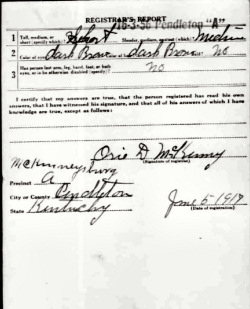 REGISTRAR'S REPORT
16-3-56 Pendleton "A"
1 Tall, medium, or short (specify which)? Short Slender, medium, or stout (which)? Medium
2 Color of eyes? Dark Brown Color of hair? dark Brown Bald? No
3 Has person lost arm, leg, hand, foot, or both eyes, or is he otherwise disabled (specify)? No
I certify that my answers are true, that the person registered has read his own answers, that I have witnessed his signature, and that all of his answers of which I have knowledge are true, except as follows:
Orie D McKinny
(Signature of registrar)
McKinneysburg
Precinct A
City or County Pendleton
State Kentucky
June 5-1917
(Date of registration)